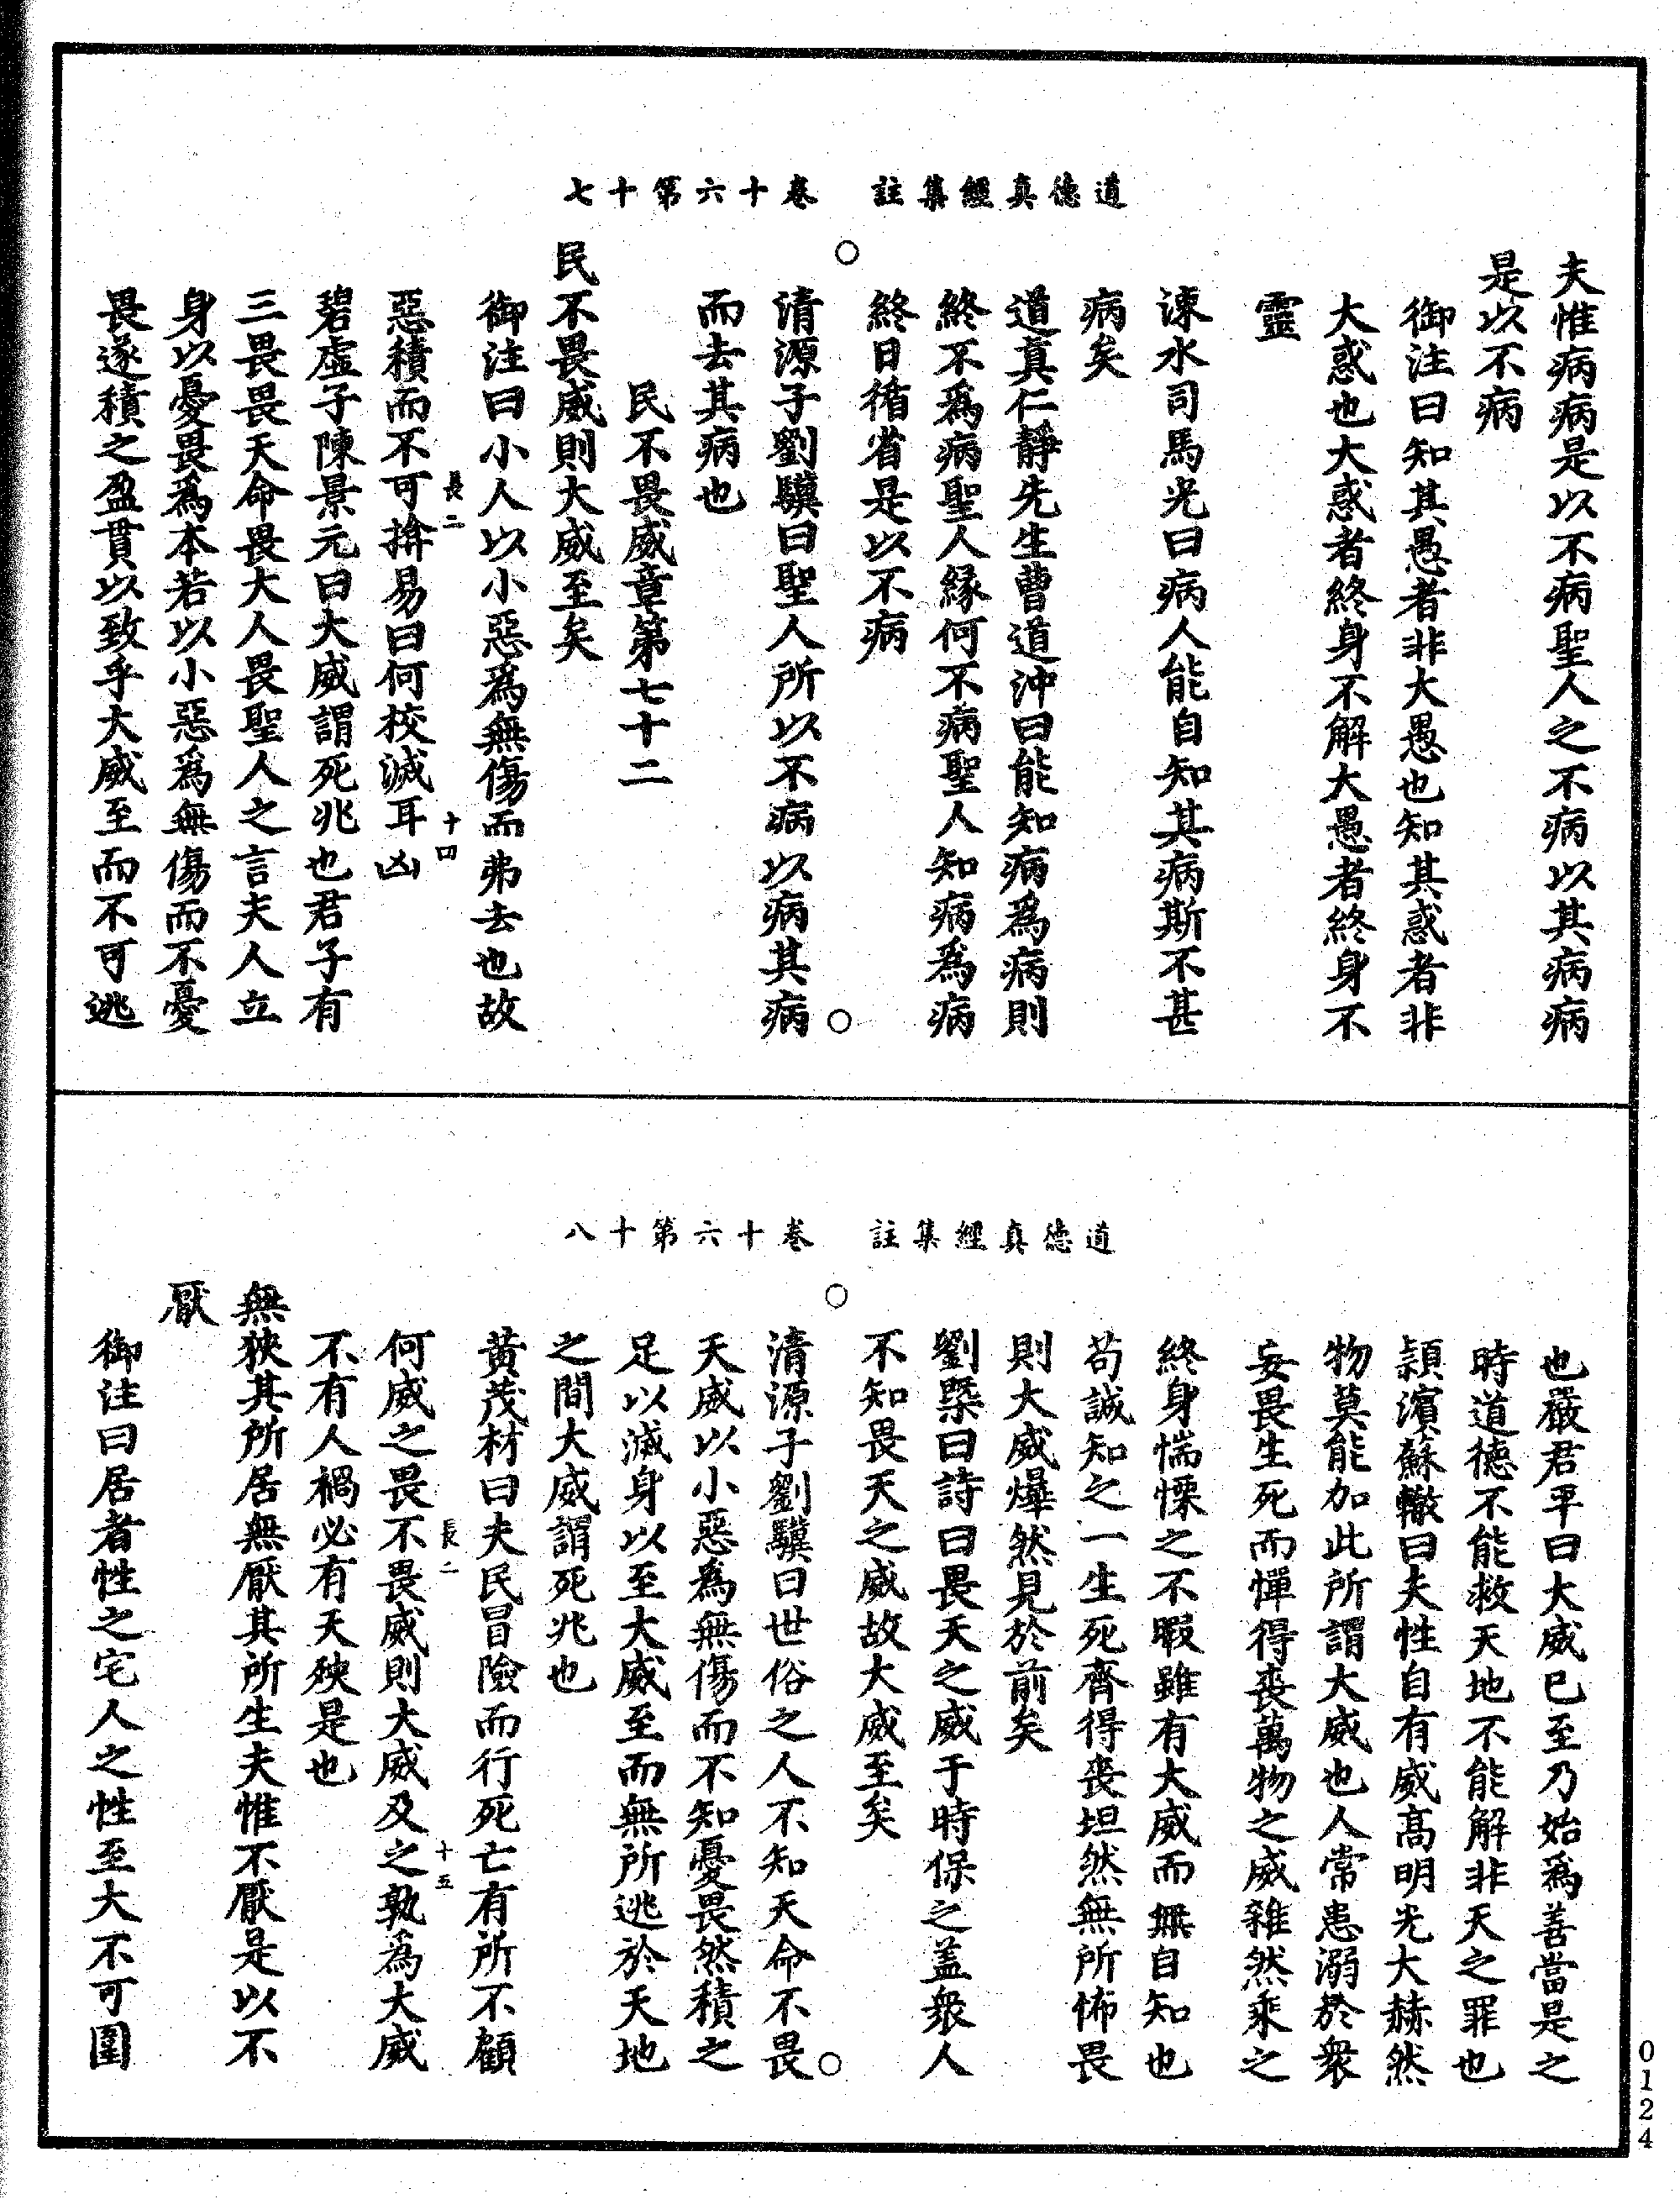 道德真經集註　卷十六第十七
夫惟病病是以不病聖人之不病以其病病
是以不病
御注曰知其愚者非大愚也知其惑者非
大惑也大惑者終身不解大愚者終身不
靈
涑水司馬光曰病人能自知其病斯不甚
病矣
道真仁靜先生曹道沖曰能知病為病則
終不為病聖人緣何不病聖人知病為病
終日循省是以不病
○
○
清源子劉驥曰聖人所以不病以病其病
而去其病也
民不畏威章第七十二
民不畏威則大威至矣
御注曰小人以小惡為無傷而弗去也故
長二
十四
惡積而不可揜易曰何校滅耳凶
碧虛子陳景元曰大威謂死兆也君子有
三畏畏天命畏大人畏聖人之言夫人立
身以憂畏為本若以小惡為無傷而不憂
畏遂積之盈貫以致乎大威至而不可逃
道德真經集註　卷十六第十八
也嚴君平曰大威已至乃始為善當是之
時道德不能救天地不能解非天之罪也
潁濱蘇轍曰夫性自有威高明光大赫然
物莫能加此所謂大威也人常患溺於衆
妄畏生死而憚得喪萬物之威雜然乘之
終身惴慄之不暇雖有大威而無自知也
苟誠知之一生死齊得喪坦然無所怖畏
則大威爗然見於前矣
劉槩曰詩曰畏天之威于時保之盖衆人
不知畏天之威故大威至矣
○
○
清源子劉驥曰世俗之人不知天命不畏
天威以小惡為無傷而不知憂畏然積之
足以滅身以至大威至而無所逃於天地
之間大威謂死兆也
黃茂材曰夫民冒險而行死亡有所不顧
長二
十五
何威之畏不畏威則大威及之孰為大威
不有人禍必有天殃是也
無狹其所居無厭其所生夫惟不厭是以不
厭
御注曰居者性之宅人之性至大不可圍
0124